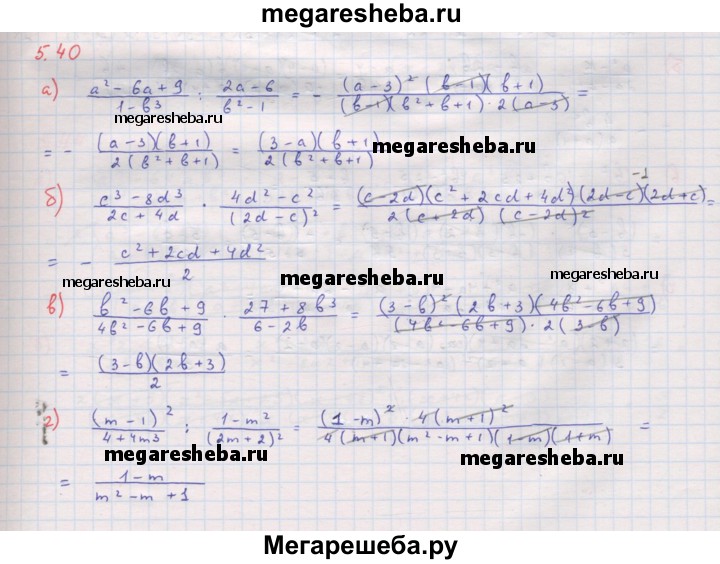 megaresheba.ru
5.40
а) (a² - 6a + 9)/(1 - b³) : (2a - 6)/(b² - 1) = - ((a - 3)² (b - 1)(b + 1))/((b - 1)(b² + b + 1) · 2(a - 3)) =
megaresheba.ru
megaresheba.ru
= - ((a - 3)(b + 1))/(2(b² + b + 1)) = ((3 - a)(b + 1))/(2(b² + b + 1))
megaresheba.ru
б) (c³ - 8d³)/(2c + 4d) · (4d² - c²)/((2d - c)²) = ((c - 2d)(c² + 2cd + 4d²)(2d - c)⁻¹(2d + c))/(2(c + 2d) (c - 2d)²) =
= - (c² + 2cd + 4d²)/2
megaresheba.ru
megaresheba.ru
megaresheba.ru
в) (b² - 6b + 9)/(4b² - 6b + 9) · (27 + 8b³)/(6 - 2b) = ((3 - b)² (2b + 3)(4b² - 6b + 9))/((4b² - 6b + 9) · 2(3 - b))
= ((3 - b)(2b + 3))/2
megaresheba.ru
г) (m - 1)²/(4 + 4m³) : (1 - m²)/((2m + 2)²) = ((1 - m)² · 4(m + 1)²)/(4(m + 1)(m² - m + 1)(1 - m)(1 + m)) =
megaresheba.ru
megaresheba.ru
= (1 - m)/(m² - m + 1)
Мегарешеба.ру